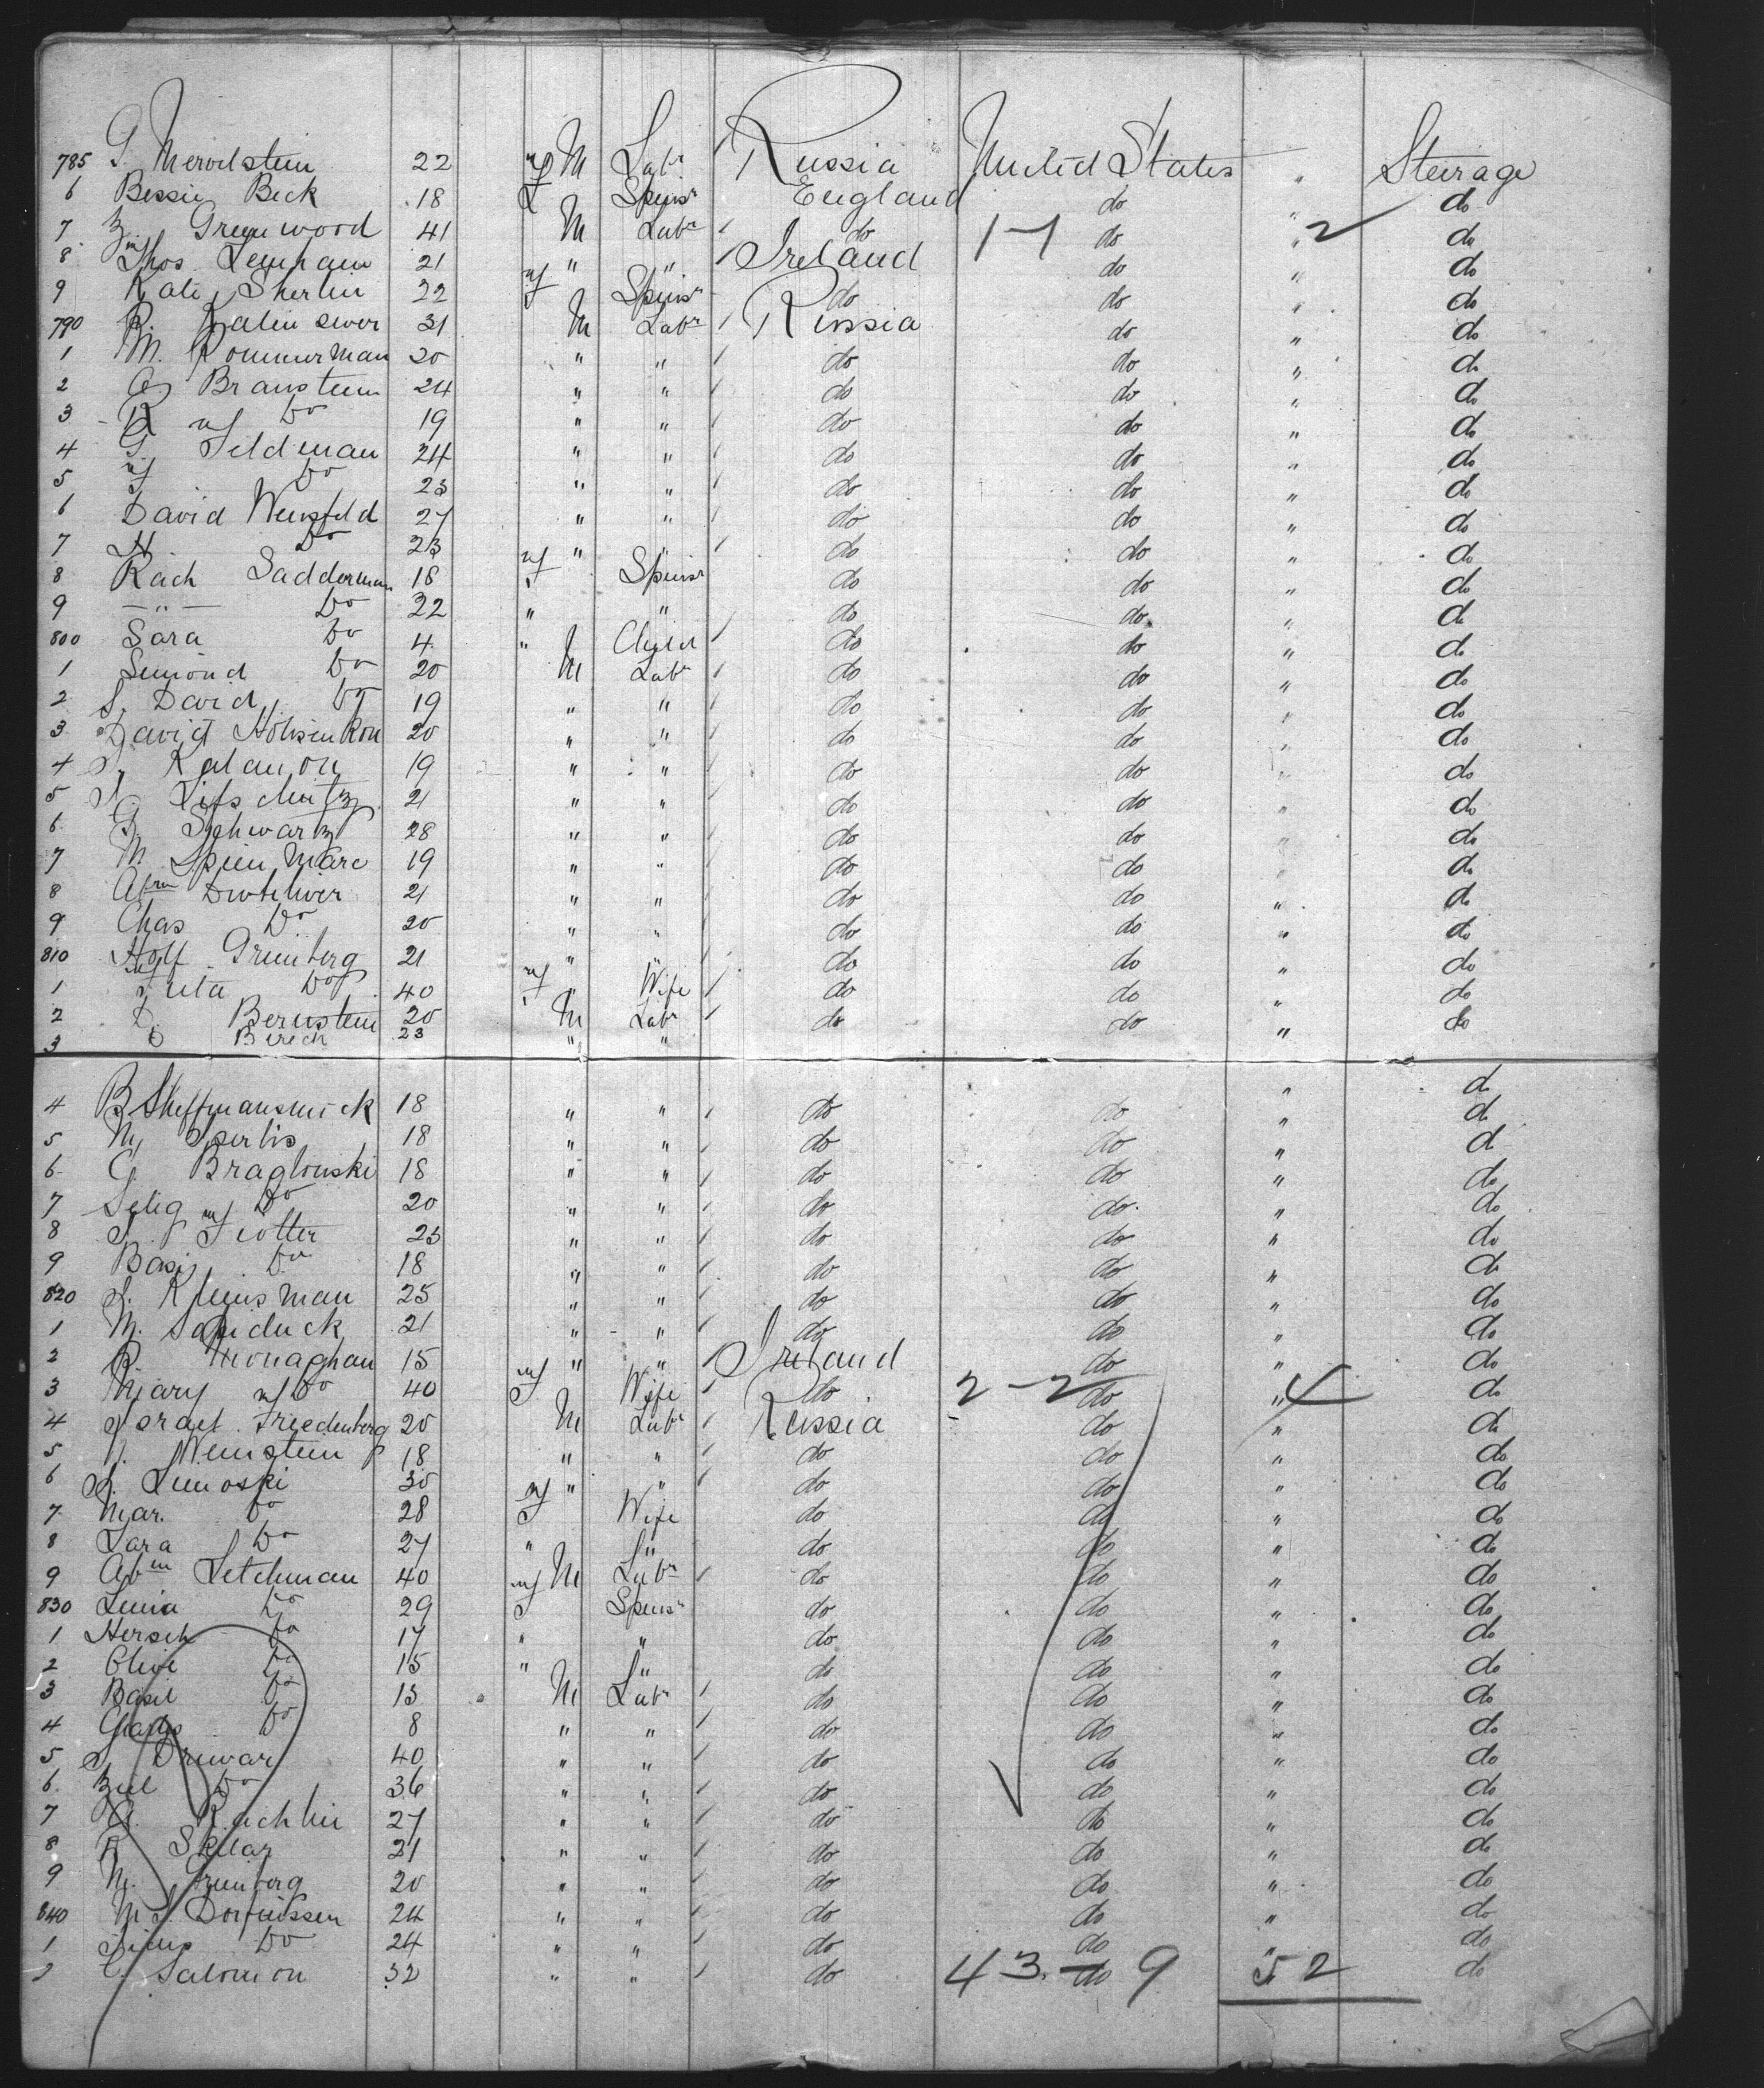 785 G. Merovilstein 22 M Labr Russia United States " Steerage
6 Bessie Beck .18 F Spinsr England do " do
7 Z. Greenwood 41 M Labr do 1-1 do " 2 do
8 Thos 21 " " Ireland do " do
9 Kate Sherlin 22 F Spinsr do do " do
790 R. 31 M Labr Russia do " do
1 M. Rommerman 20 " " do do " do
2 G Braustein 24 " " do do " do
3 R Do 19 " " do do " do
4 G. Feldman 24 " " do do " do
5 F Do 23 " " do do " do
6 David Weinsfeld 27 " " do do " do
7 H Do 23 " " do do " do
8 Rach Sadderman 18 F Spinsr do do " do
9 — " — Do 22 " " do do " do
800 Sara Do 4 " Child do do " do
1 Simond Do 20 M Labr do do " do
2 S. David Do 19 " " do do " do
3 David 20 " " do do " do
4 S. Kalamon 19 " " do do " do
5 S. Lifschutz 21 " " do do " do
6 S. Schwartz 28 " " do do " do
7 M 19 " " do do " do
8 Abrm 21 " " do do " do
9 Chas Do 20 " " do do " do
810 Holf Grunberg 21 " " do do " do
1 Juta Do 40 F Wife do do " do
2 D. Bernstein 20 M Labr do do " do
3 Berech 23 " "
" do
4 B 18 " " do do " do
5 M. Sperlis 18 " " do do " d
6 G. Braglonski 18 " " do do " do
7 Selig Do 20 " " do do " do
8 S. 23 " " do do " do
9 Basi Do 18 " " do do " do
820 S. Kleinsman 25 " " do do " do
1 M. 21 " " do do " do
2 P. Monaghan 15 " " Ireland do " do
3 Mary Do 40 F Wife do 2-2 do " 4 do
4 Israel Friedenberg 20 M Labr Russia do " do
5 Weinstein 18 " " do do " do
6 S. Limoski 30 " " do do " do
7 Mar. Do 28 F Wife do do " do
8 Sara Do 27 " " do do " do
9 Abm Letchman 40 M Labr do do " do
830 Do 29 F Spinsr do do " do
1 Hersch Do 17 " " do do " do
2 Do 15 " " do do " do
3 Basil Do 13 M Labr do do " do
4 Do 8 " " do do " do
5 S. 40 " " do do " do
6 Do 36 " " do do " do
7 A. Rachlin 27 " " do do " do
8 R Skllar 21 " " do do " do
9 M. Grunberg 20 " " do do " do
840 M S. 24 " " do do " do
1 Do 24 " " do do " do
2 Salomon 32 " " do 43 - 9 do 52 do